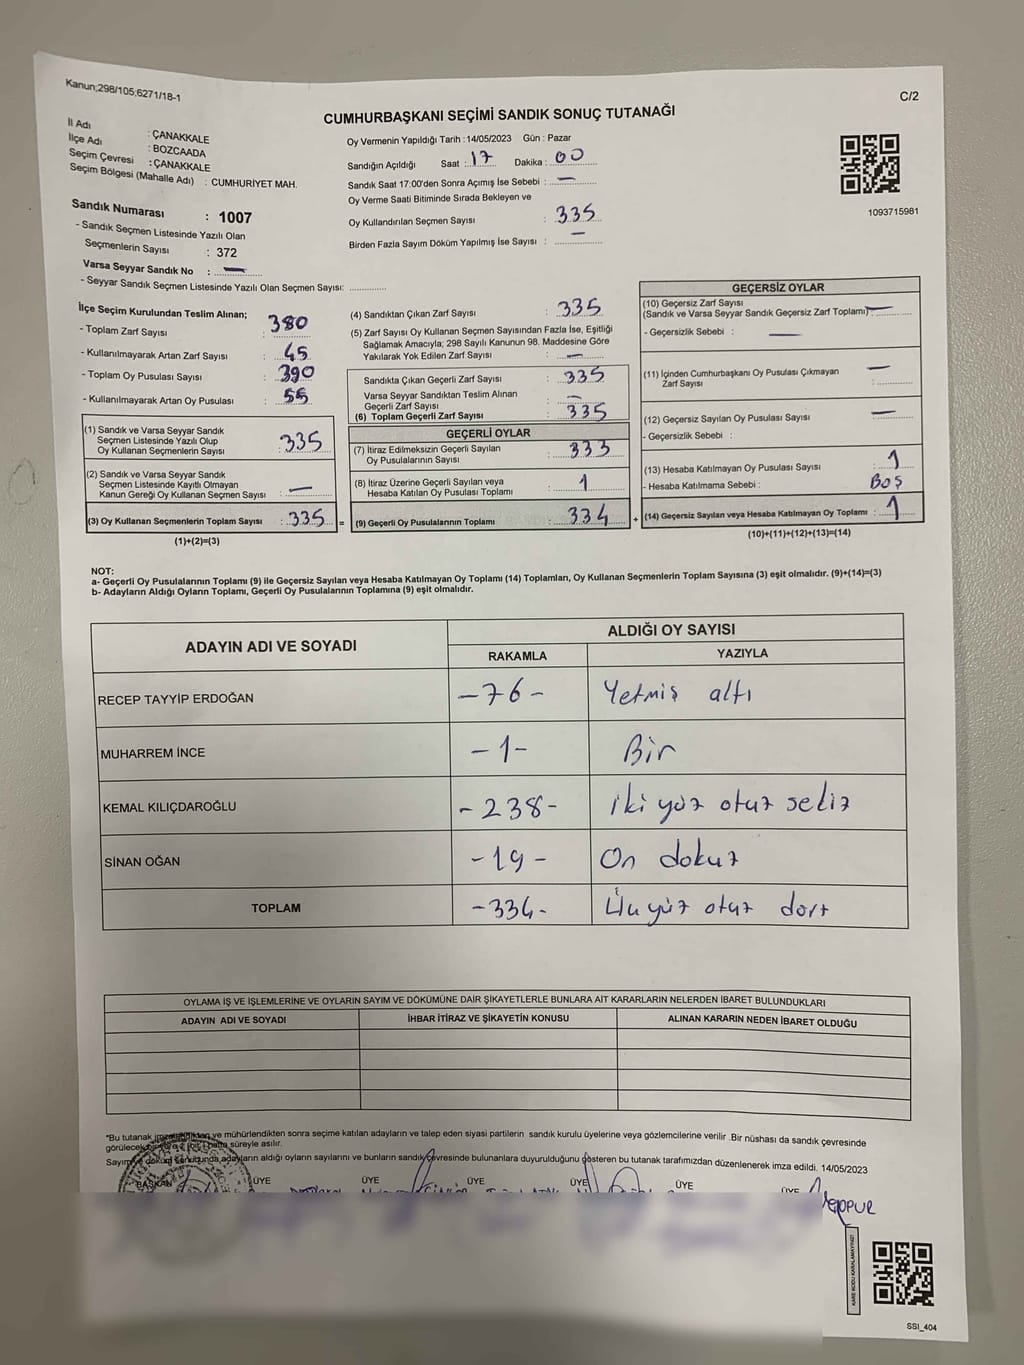 Kanun;298/105;6271/18-1
C/2
CUMHURBAŞKANI SEÇİMİ SANDIK SONUÇ TUTANAĞI
İl Adı : ÇANAKKALE
İlçe Adı : BOZCAADA
Seçim Çevresi : ÇANAKKALE
Seçim Bölgesi (Mahalle Adı) : CUMHURİYET MAH.
Oy Vermenin Yapıldığı Tarih : 14/05/2023 Gün : Pazar
Sandığın Açıldığı Saat : 17 Dakika : 00
Sandık Saat 17:00'den Sonra Açımış İse Sebebi : —
Oy Verme Saati Bitiminde Sırada Bekleyen ve
Oy Kullandırılan Seçmen Sayısı : 335
Birden Fazla Sayım Döküm Yapılmış İse Sayısı : —
1093715981
Sandık Numarası : 1007
- Sandık Seçmen Listesinde Yazılı Olan
Seçmenlerin Sayısı : 372
Varsa Seyyar Sandık No : —
- Seyyar Sandık Seçmen Listesinde Yazılı Olan Seçmen Sayısı: ..............
İlçe Seçim Kurulundan Teslim Alınan;
- Toplam Zarf Sayısı : 380
- Kullanılmayarak Artan Zarf Sayısı : 45
- Toplam Oy Pusulası Sayısı : 390
- Kullanılmayarak Artan Oy Pusulası : 55
(1) Sandık ve Varsa Seyyar Sandık
Seçmen Listesinde Yazılı Olup
Oy Kullanan Seçmenlerin Sayısı : 335
(2) Sandık ve Varsa Seyyar Sandık
Seçmen Listesinde Kayıtlı Olmayan
Kanun Gereği Oy Kullanan Seçmen Sayısı : —
(3) Oy Kullanan Seçmenlerin Toplam Sayısı : 335 =
(1)+(2)=(3)
(4) Sandıktan Çıkan Zarf Sayısı : 335
(5) Zarf Sayısı Oy Kullanan Seçmen Sayısından Fazla İse, Eşitliği
Sağlamak Amacıyla; 298 Sayılı Kanunun 98. Maddesine Göre
Yakılarak Yok Edilen Zarf Sayısı : —
Sandıkta Çıkan Geçerli Zarf Sayısı : 335
Varsa Seyyar Sandıktan Teslim Alınan
Geçerli Zarf Sayısı : —
(6) Toplam Geçerli Zarf Sayısı : 335
GEÇERLİ OYLAR
(7) İtiraz Edilmeksizin Geçerli Sayılan
Oy Pusulalarının Sayısı : 333
(8) İtiraz Üzerine Geçerli Sayılan veya
Hesaba Katılan Oy Pusulası Toplamı : 1
(9) Geçerli Oy Pusulalarının Toplamı : 334 +
GEÇERSİZ OYLAR
(10) Geçersiz Zarf Sayısı
(Sandık ve Varsa Seyyar Sandık Geçersiz Zarf Toplamı) —
- Geçersizlik Sebebi : —
(11) İçinden Cumhurbaşkanı Oy Pusulası Çıkmayan
Zarf Sayısı : —
(12) Geçersiz Sayılan Oy Pusulası Sayısı —
- Geçersizlik Sebebi :
(13) Hesaba Katılmayan Oy Pusulası Sayısı : 1
- Hesaba Katılmama Sebebi : BOŞ
(14) Geçersiz Sayılan veya Hesaba Katılmayan Oy Toplamı : 1
(10)+(11)+(12)+(13)=(14)
NOT:
a- Geçerli Oy Pusulalarının Toplamı (9) ile Geçersiz Sayılan veya Hesaba Katılmayan Oy Toplamı (14) Toplamları, Oy Kullanan Seçmenlerin Toplam Sayısına (3) eşit olmalıdır. (9)+(14)=(3)
b- Adayların Aldığı Oyların Toplamı, Geçerli Oy Pusulalarının Toplamına (9) eşit olmalıdır.
ADAYIN ADI VE SOYADI ALDIĞI OY SAYISI
RAKAMLA YAZIYLA
RECEP TAYYİP ERDOĞAN -76- Yetmiş altı
MUHARREM İNCE -1- Bir
KEMAL KILIÇDAROĞLU -238- iki yüz otuz sekiz
SİNAN OĞAN -19- On dokuz
TOPLAM -334- Üç yüz otuz dört
OYLAMA İŞ VE İŞLEMLERİNE VE OYLARIN SAYIM VE DÖKÜMÜNE DAİR ŞİKAYETLERLE BUNLARA AİT KARARLARIN NELERDEN İBARET BULUNDUKLARI
ADAYIN ADI VE SOYADI İHBAR İTİRAZ VE ŞİKAYETİN KONUSU ALINAN KARARIN NEDEN İBARET OLDUĞU
*Bu tutanak ve mühürlendikten sonra seçime katılan adayların ve talep eden siyasi partilerin sandık kurulu üyelerine veya gözlemcilerine verilir .Bir nüshası da sandık çevresinde
görülecek süreyle asılır.
Sayım ve döküm sonucunda adayların aldığı oyların sayılarını ve bunların sandık çevresinde bulunanlara duyurulduğunu gösteren bu tutanak tarafımızdan düzenlenerek imza edildi. 14/05/2023
BAŞKAN ÜYE ÜYE ÜYE ÜYE ÜYE ÜYE
KARE KODU KARALAMAYINIZ!
SSI_404